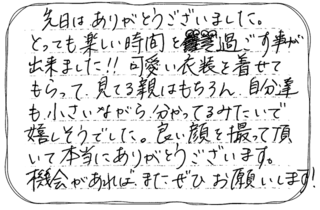 先日はありがとうございました。
とっても楽しい時間を過ごす事が
出来ました!! 可愛い衣装を着せて
もらって、見てる親はもちろん、自分達
も小さいながら分かってるみたいで
嬉しそうでした。良い顔を撮って頂
いて本当にありがとうございます。
機会があれば、またぜひお願いします!